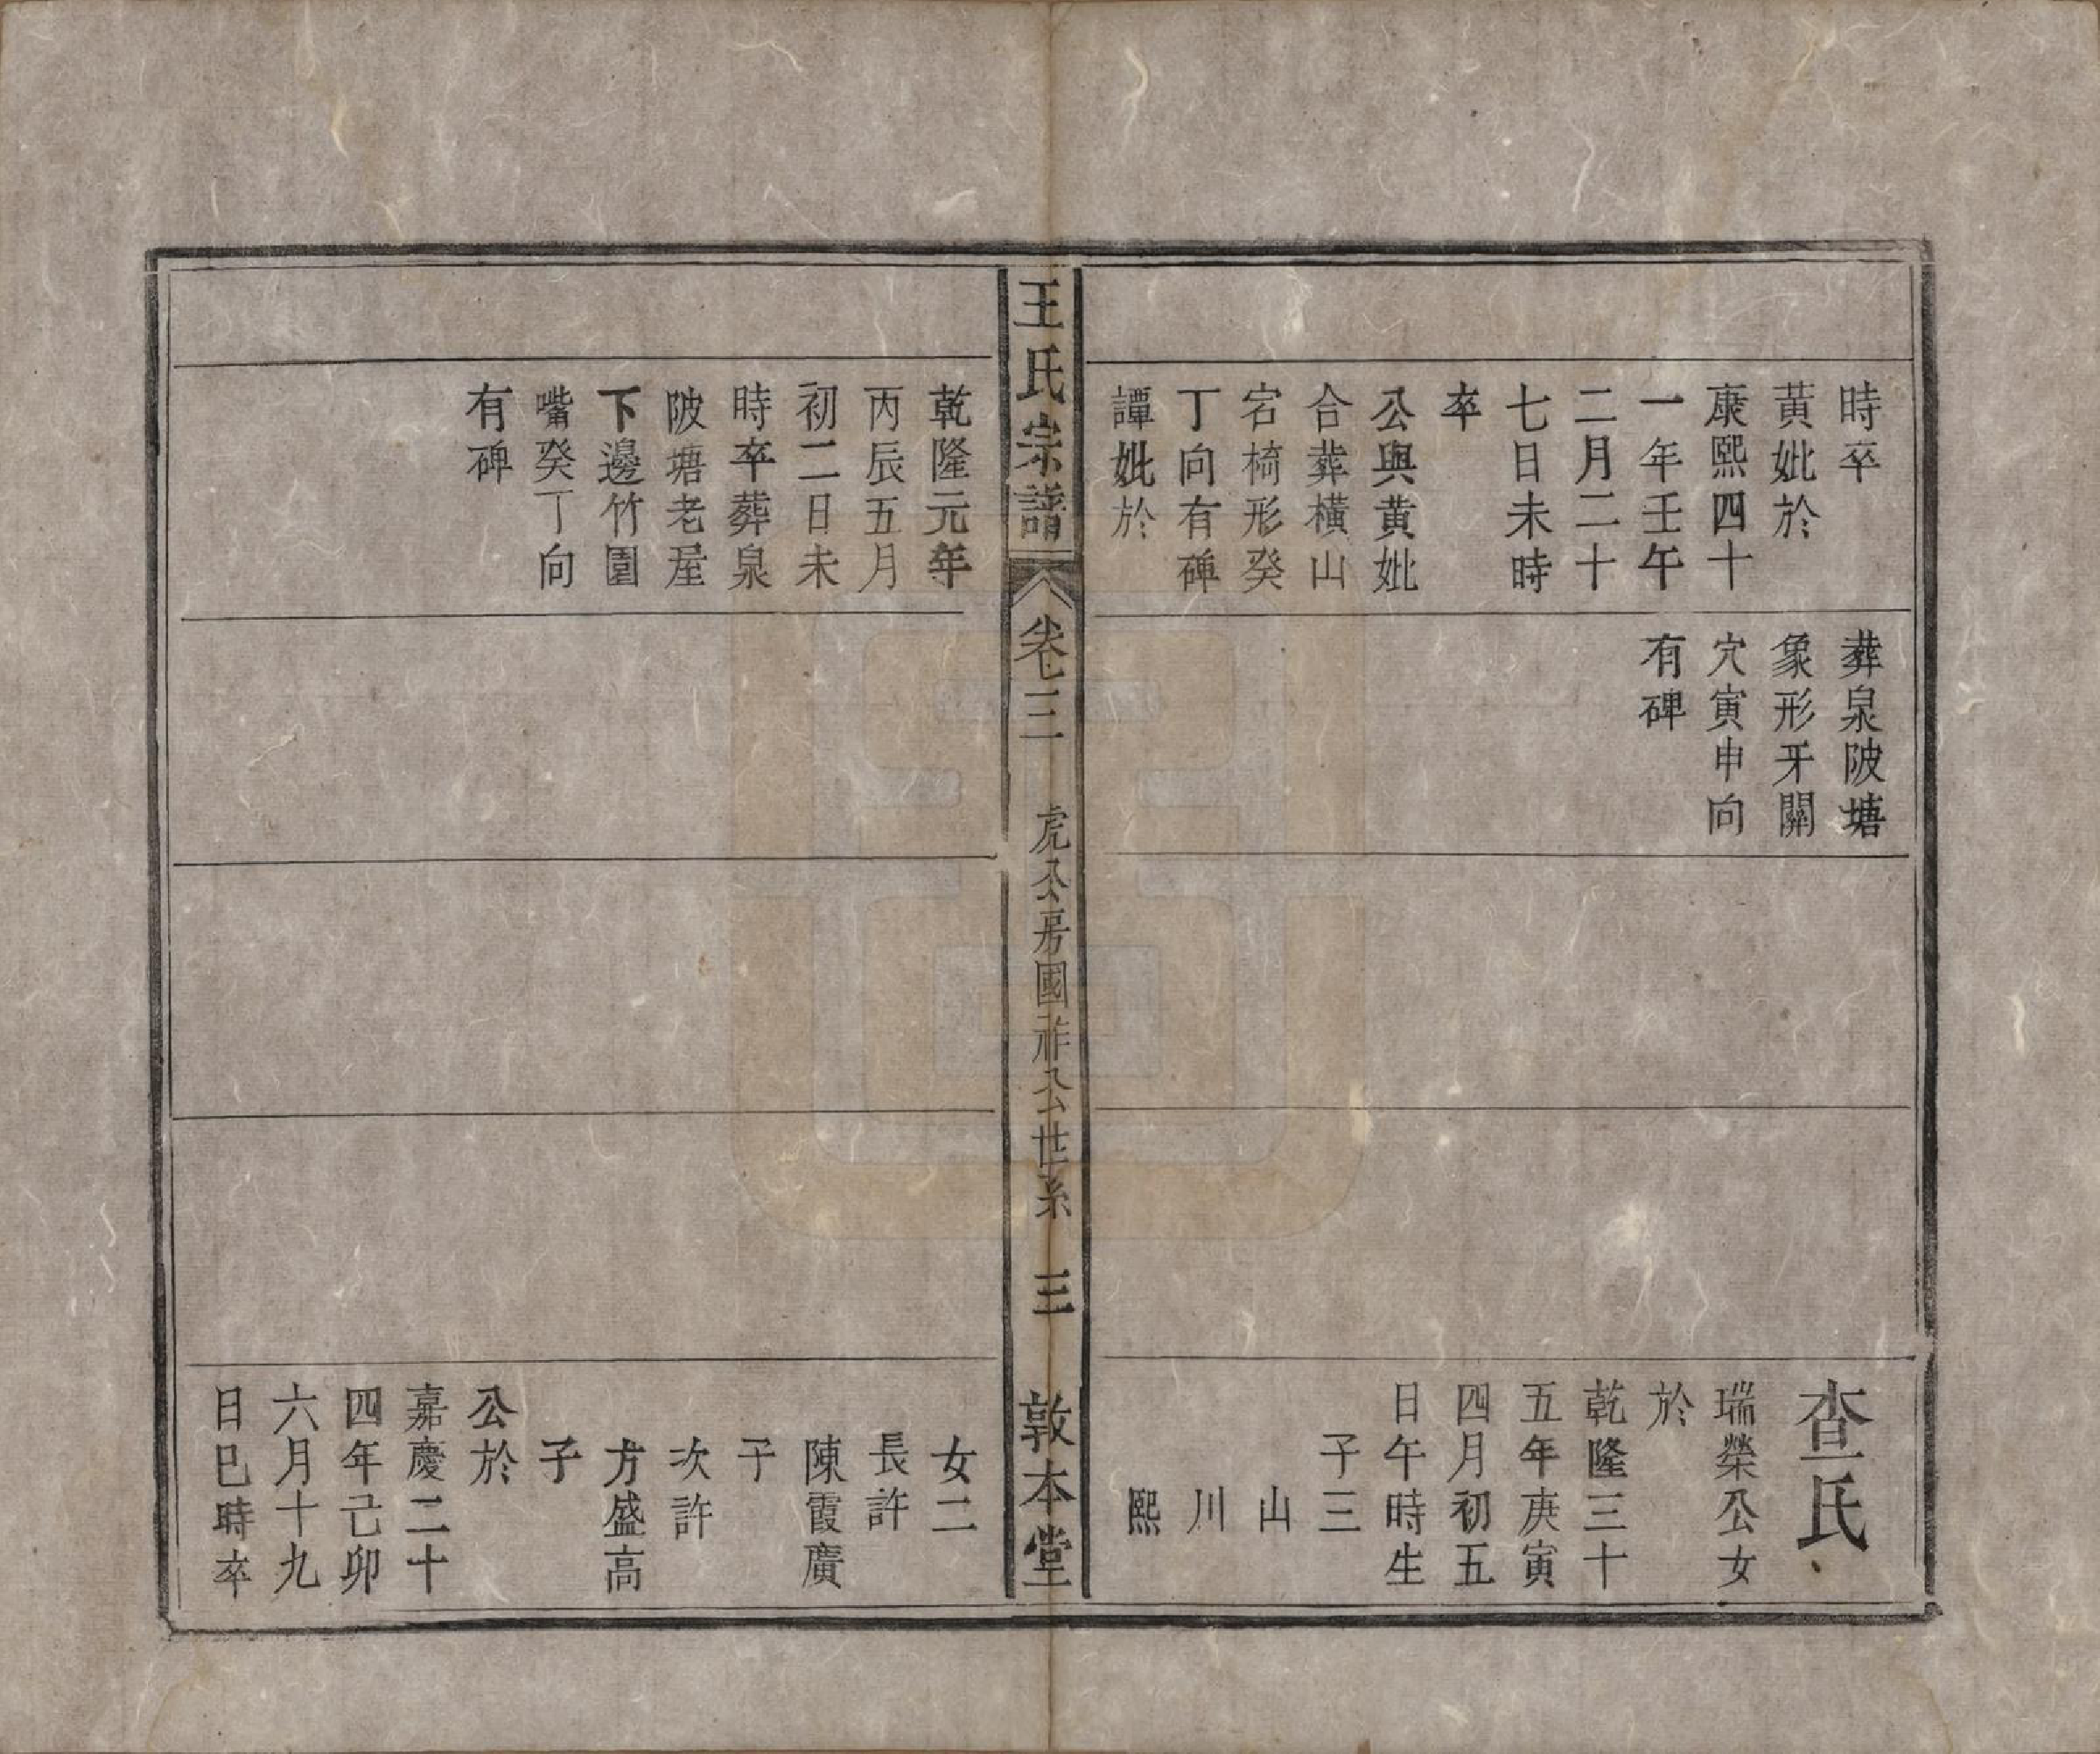 時卒
黃妣於
康熙四十
一年壬午
二月二十
七日未時
卒
公與黃妣
合葬橫山
宕椅形癸
丁向有碑
譚妣於
葬泉陂塘
象形牙關
穴寅申向
有碑
查氏
瑞榮公女
於
乾隆三十
五年庚寅
四月初五
日午時生
子三
山
川
熙
王氏宗譜
卷三
虎公房國祚公世系
三
敦本堂
乾隆元年
丙辰五月
初二日未
時卒葬泉
陂塘老屋
下邊竹園
嘴癸丁向
有碑
女二
長許
陳霞廣
子
次許
方盛高
子
公於
嘉慶二十
四年己卯
六月十九
日巳時卒